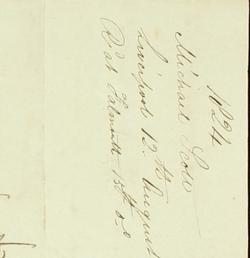 1824
Michael Scott
Liverpool 12th August
Rd at Falmouth 15th do